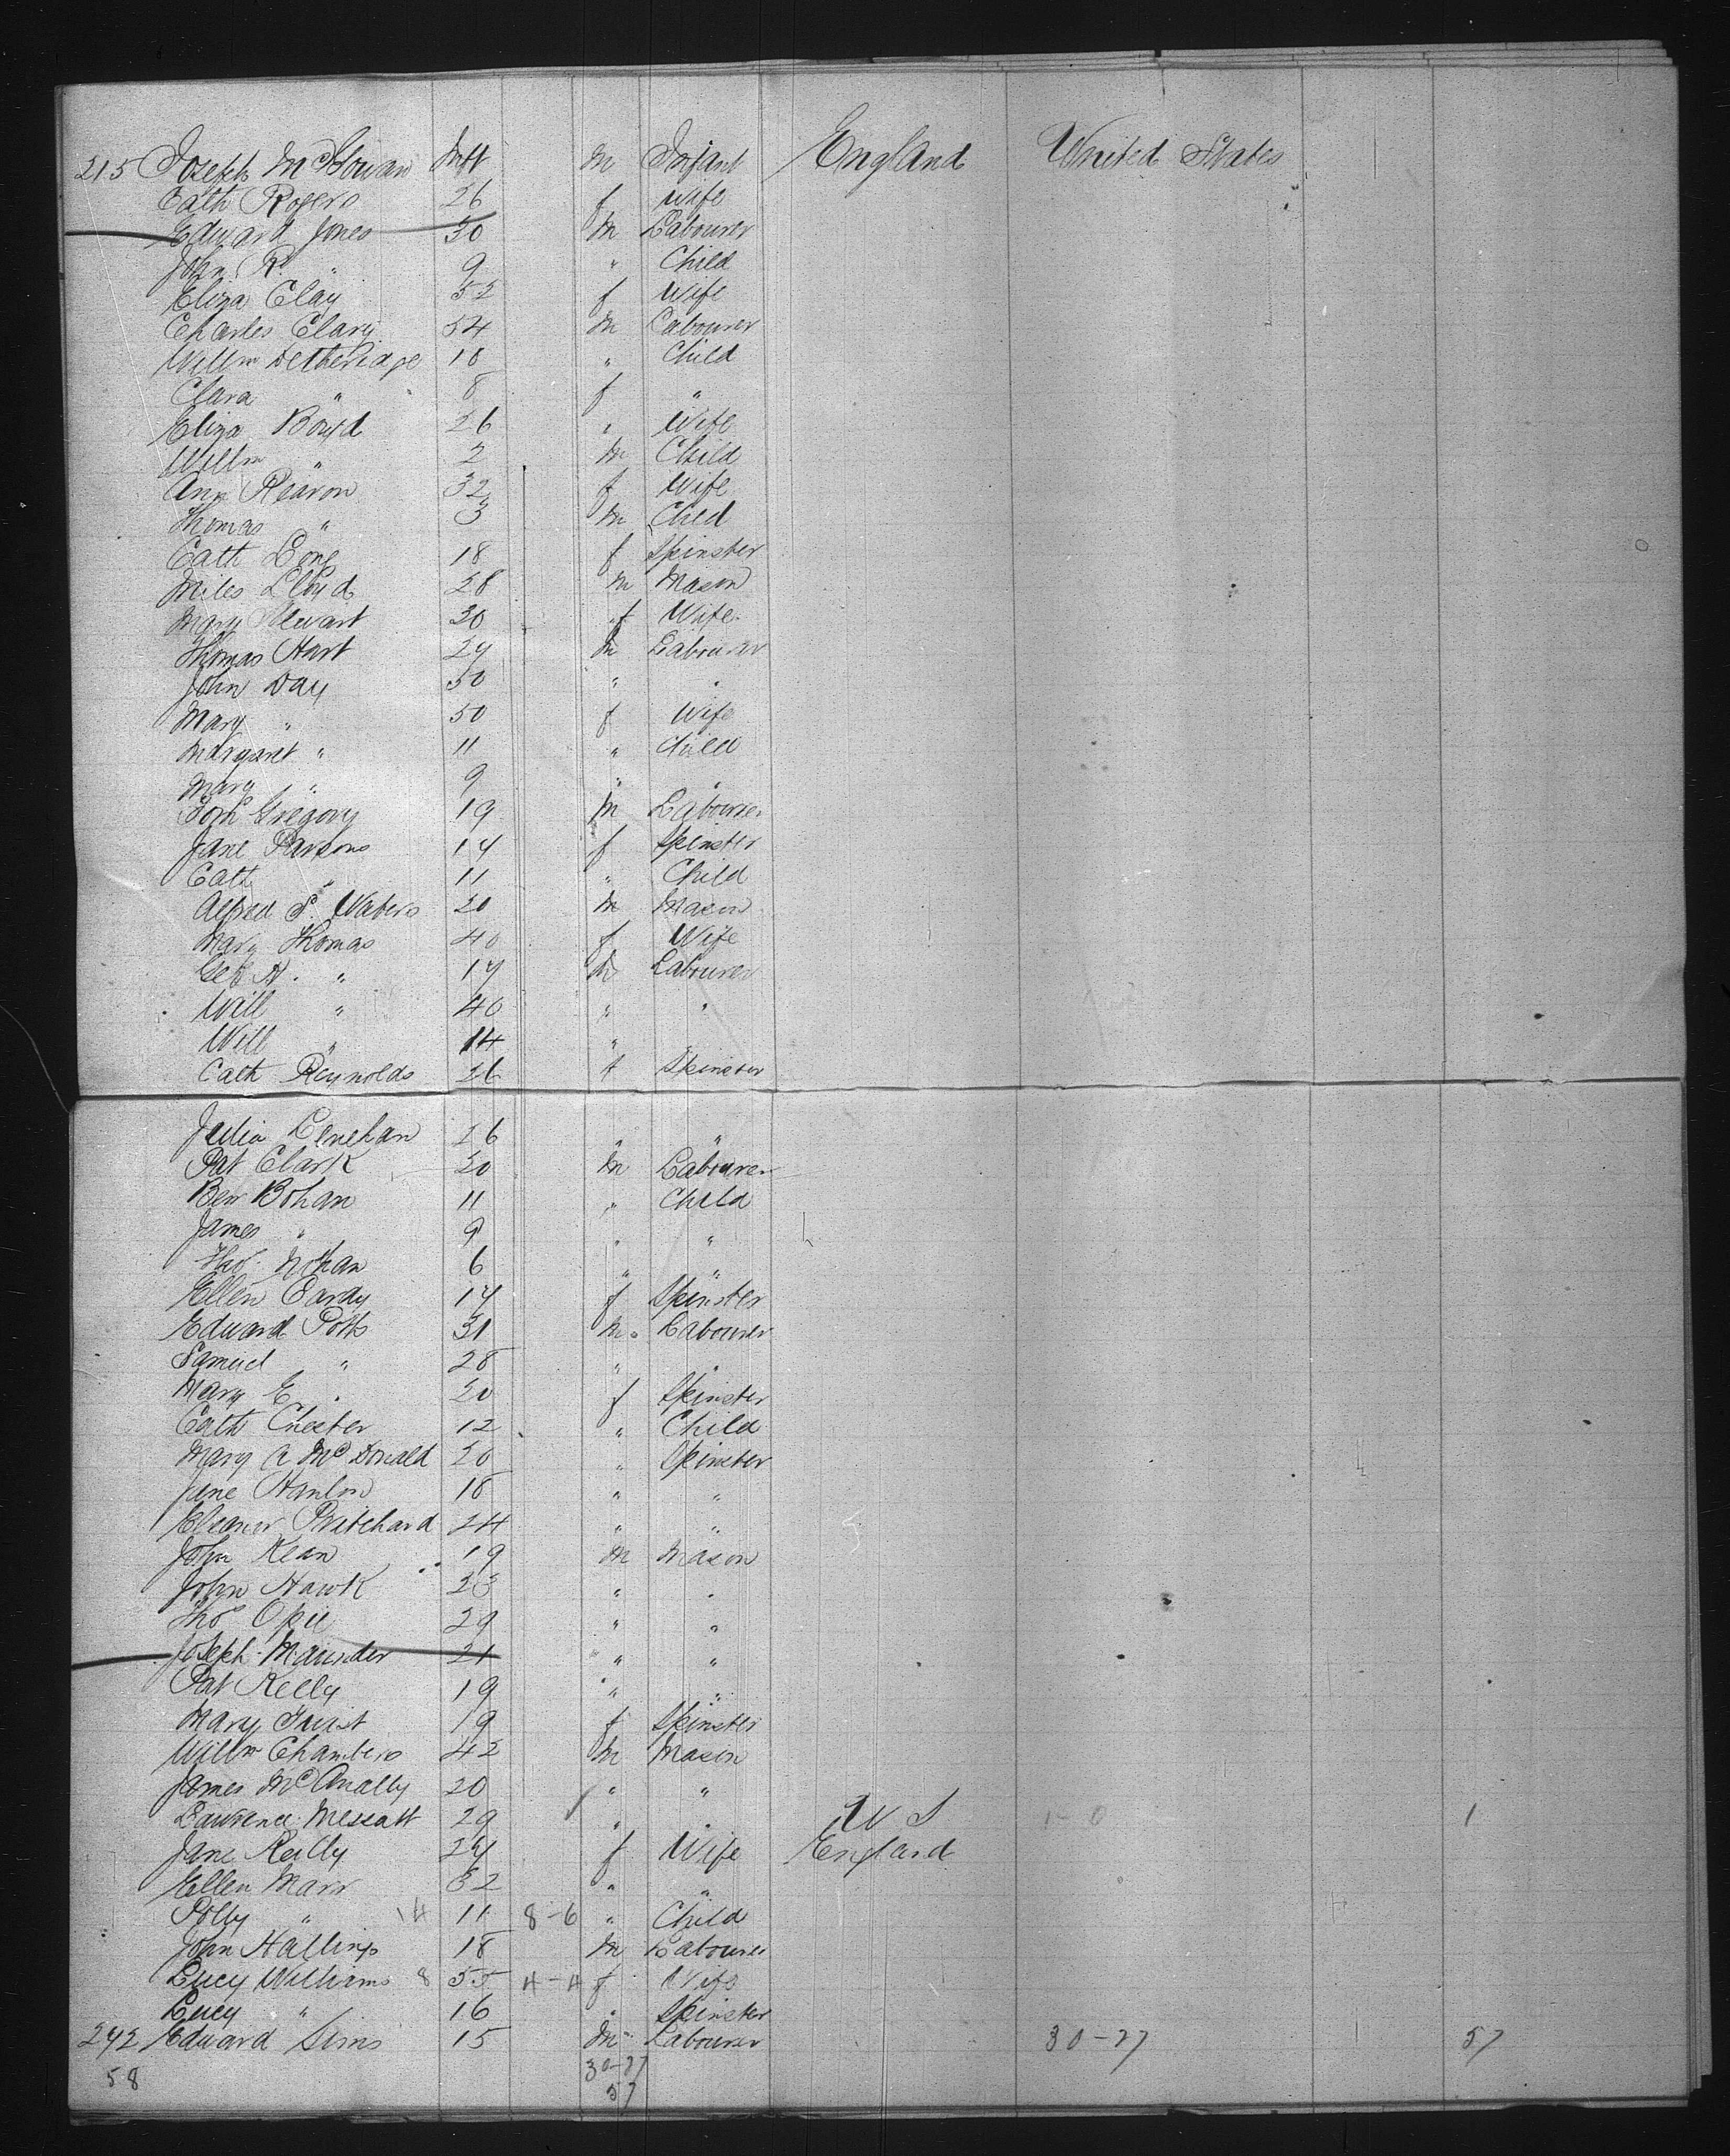 215 Joseph McGowan Inft m Infant England United States
Cath Rogers 26 f Wife
Edward Jones 30 m Labourer
John R. " 9 " Child
Eliza Clay 52 f Wife
Charles Clary 54 m Labourer
Willm Detheridge 10 " Child
Clara " 8 f "
Eliza Boyd 26 " Wife
Willm " 2 m Child
Ann Rearon 32 f Wife
Thomas " 3 m Child
Cath Long 18 f Spinster
Miles Lloyd 28 m Mason
Mary Stewart 30 f Wife
Thomas Hart 24 m Labourer
John Day 50 " "
Mary " 50 f Wife
Margaret " 11 " Child
Mary " 9 " "
Gregory 19 m Labourer
Jane Parsons 17 f Spinster
Cath " 11 " Child
Alfred S. Waters 20 m Mason
Mary Thomas 40 f Wife
Geo H. " 17 m Labourer
Will " 40 " "
Will " 14 "
Cath Reynolds 26 f Spinster
Julia Lenehan 26 " "
Pat Clark 30 m Labourer
Ben Bohan 11 " Child
James " 9 " "
Tho. Mohan 6 " "
Ellen Cardy 17 f Spinster
Edward Potts 31 m. Labourer
Samuel " 28 " "
Mary E " 20 f Spinster
Cath Chester 12 " Child
Mary A McDonald 20 " Spinster
Jane Hanlon 18 " "
Eleanor Pritchard 24 " "
John Kean 19 m Mason
John Hawk 23 " "
Tho Opie 29 " "
Joseph Maunder 21 " "
Pat Kelly 19 " "
Mary Guist 19 f Spinster
Willm Chambers 42 m Mason
James McAnally 20 " "
Lawrence Mescatt 29 " " U S 1-0 1
Jane Reilly 24 f Wife England
Ellen Marr 32 " "
Polly " 14 11 8-6 " Child
John Hallings 18 m Labourer
Lucy Williams 8 55 4-4 f Wife
Lucy " 16 " Spinster
272 Edward Sims 15 m Labourer 30-27 57
58 30-27
57